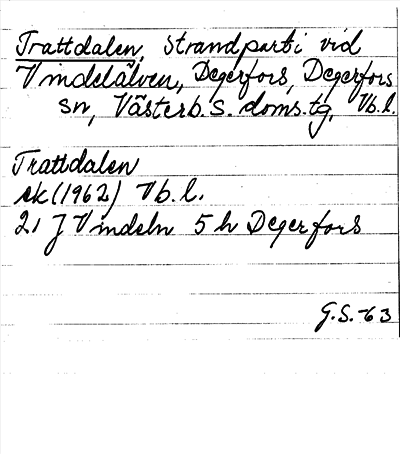 Trattdalen, strandparti vid
Vindelälven, Degerfors, Degerfors
sn, Västerb. s. doms.tg, Vb.l.
Trattdalen
ek (1962) Vb.l.
21 J Vindeln 5 h Degerfors
G.S.-63